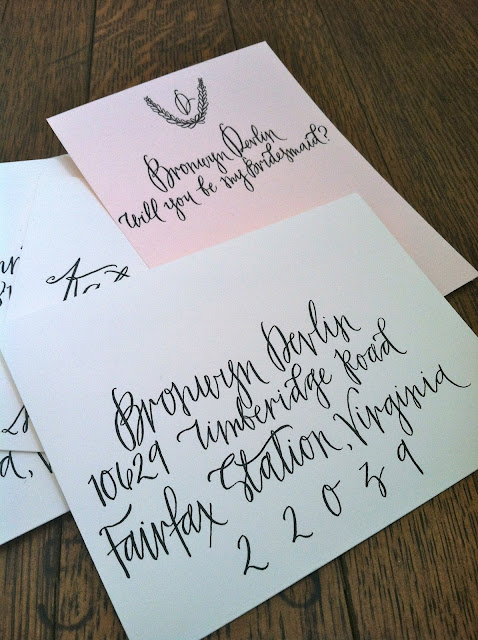 D
Bronwyn Devlin
Will you be my Bridesmaid?
Bronwyn Devlin
10629 Timberidge Road
Fairfax Station, Virginia
22039